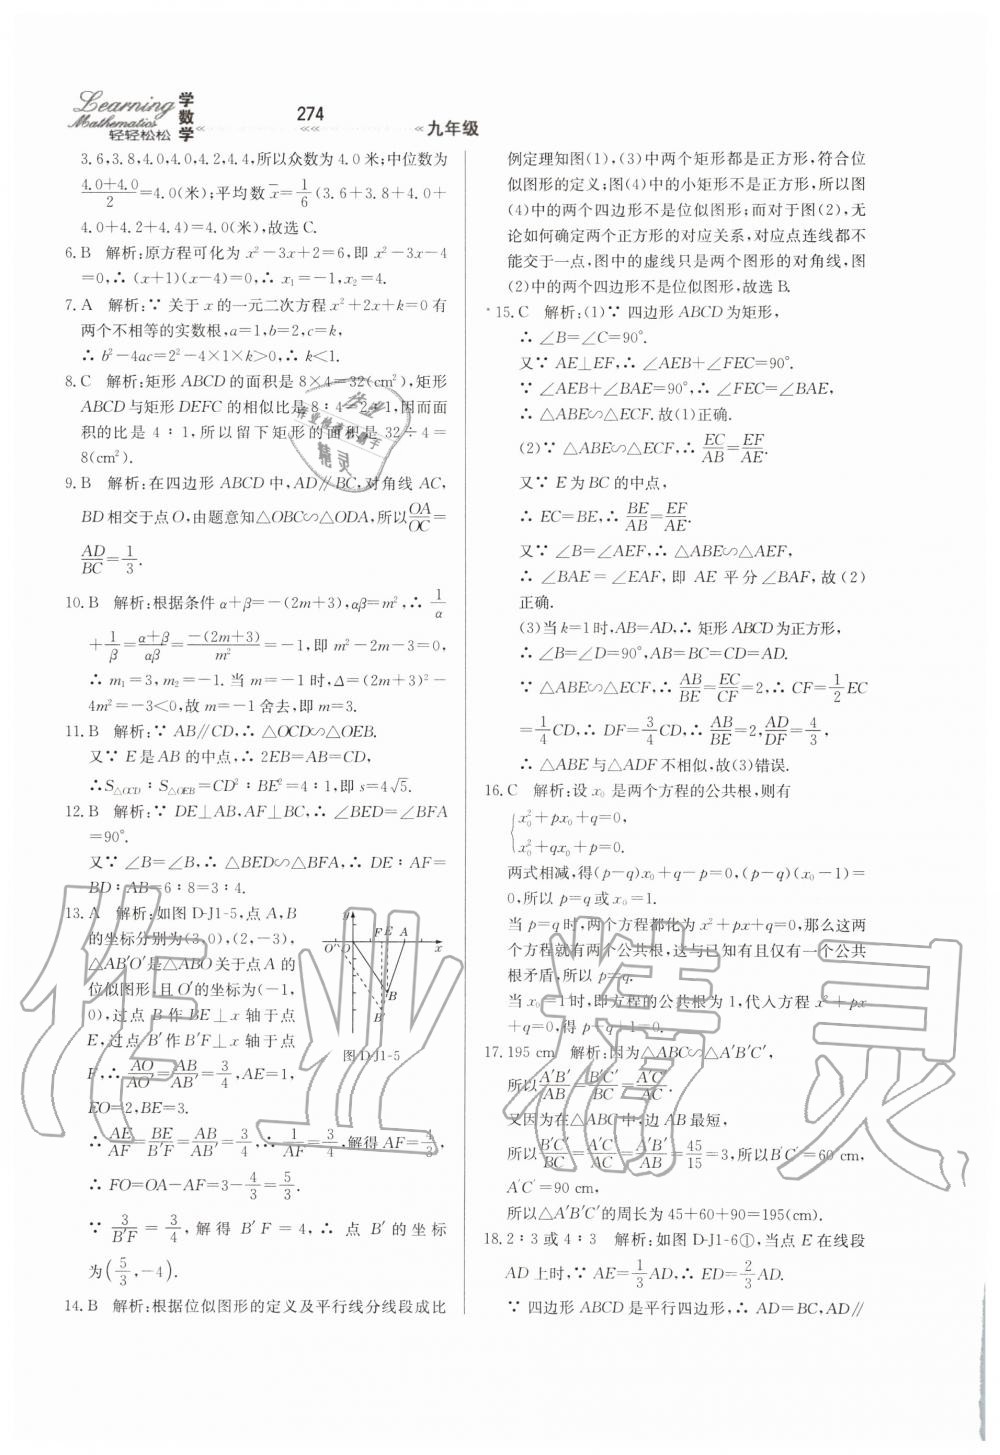 Learning
Mathematics
轻轻松松
学数学
274
九年级
3.6,3.8,4.0,4.0,4.2,4.4,所以众数为4.0米;中位数为
(4.0+4.0)/2=4.0(米);平均数x̄=1/6(3.6+3.8+4.0+
4.0+4.2+4.4)=4.0(米),故选C.
6.B 解析:原方程可化为x²-3x+2=6,即x²-3x-4
=0,∴(x+1)(x-4)=0,∴x₁=-1,x₂=4.
7.A 解析:∵关于x的一元二次方程x²+2x+k=0有
两个不相等的实数根,a=1,b=2,c=k,
∴b²-4ac=2²-4×1×k>0,∴k<1.
8.C 解析:矩形ABCD的面积是8×4=32(cm²),矩形
ABCD与矩形DEFC的相似比是8∶4=2∶1,因而面
积的比是4∶1,所以留下矩形的面积是32÷4=
8(cm²).
9.B 解析:在四边形ABCD中,AD∥BC,对角线AC,
BD相交于点O,由题意知△OBC∽△ODA,所以OA/OC=
AD/BC=1/3.
10.B 解析:根据条件α+β=-(2m+3),αβ=m²,∴1/α
+1/β=(α+β)/αβ=-(2m+3)/m²=-1,即m²-2m-3=0,
∴m₁=3,m₂=-1.当m=-1时,Δ=(2m+3)²-
4m²=-3<0,故m=-1舍去,即m=3.
11.B 解析:∵AB∥CD,∴△OCD∽△OEB.
又∵E是AB的中点,∴2EB=AB=CD,
∴S△OCD∶S△OEB=CD²∶BE²=4∶1,即s=4√5.
12.B 解析:∵DE⊥AB,AF⊥BC,∴∠BED=∠BFA
=90°.
又∵∠B=∠B,∴△BED∽△BFA,∴DE∶AF=
BD∶AB=6∶8=3∶4.
13.A 解析:如图D-J1-5,点A,B
的坐标分别为(3,0),(2,-3),
△AB'O'是△ABO关于点A的
位似图形,且O'的坐标为(-1,
0),过点B作BE⊥x轴于点
E,过点B'作B'F⊥x轴于点
F,∴AO/AO'=AB/AB'=3/4,AE=1,
EO=2,BE=3.
y
O' O F E A x
B
B'
图D-J1-5
∴AE/AF=BE/B'F=AB/AB'=3/4,∴1/AF=3/4,解得AF=4/3,
∴FO=OA-AF=3-4/3=5/3.
∵3/B'F=3/4,解得B'F=4,∴点B'的坐标
为(5/3,-4).
14.B 解析:根据位似图形的定义及平行线分线段成比
例定理知图(1),(3)中两个矩形都是正方形,符合位
似图形的定义;图(4)中的小矩形不是正方形,所以图
(4)中的两个四边形不是位似图形;而对于图(2),无
论如何确定两个正方形的对应关系,对应点连线都不
能交于一点,图中的虚线只是两个图形的对角线,图
(2)中的两个图形不是位似图形,故选B.
15.C 解析:(1)∵四边形ABCD为矩形,
∴∠B=∠C=90°.
又∵AE⊥EF,∴∠AEB+∠FEC=90°.
∵∠AEB+∠BAE=90°,∴∠FEC=∠BAE,
∴△ABE∽△ECF.故(1)正确.
(2)∵△ABE∽△ECF,∴EC/AB=EF/AE.
又∵E为BC的中点,
∴EC=BE,∴BE/AB=EF/AE.
又∵∠B=∠AEF,∴△ABE∽△AEF,
∴∠BAE=∠EAF,即AE平分∠BAF,故(2)
正确.
(3)当k=1时,AB=AD,∴矩形ABCD为正方形,
∴∠B=∠D=90°,AB=BC=CD=AD.
∵△ABE∽△ECF,∴AB/BE=EC/CF=2,∴CF=1/2EC
=1/4CD,∴DF=3/4CD,∴AB/BE=2,AD/DF=4/3,
∴△ABE与△ADF不相似,故(3)错误.
16.C 解析:设x₀是两个方程的公共根,则有
{x₀²+px₀+q=0,
x₀²+qx₀+p=0.
两式相减,得(p-q)x₀+q-p=0,(p-q)(x₀-1)=
0,所以p=q或x₀=1.
当p=q时,两个方程都化为x²+px+q=0,那么这两
个方程就有两个公共根,这与已知有且仅有一个公共
根矛盾,所以p≠q.
当x₀=1时,即方程的公共根为1,代入方程x²+px
+q=0,得p+q+1=0.
17.195 cm 解析:因为△ABC∽△A'B'C',
所以A'B'/AB=B'C'/BC=A'C'/AC.
又因为在△ABC中,边AB最短,
所以B'C'/BC=A'C'/AC=A'B'/AB=45/15=3,所以B'C'=60 cm,
A'C'=90 cm,
所以△A'B'C'的周长为45+60+90=195(cm).
18.2∶3或4∶3 解析:如图D-J1-6①,当点E在线段
AD上时,∵AE=1/3AD,∴ED=2/3AD.
∵四边形ABCD是平行四边形,∴AD=BC,AD∥
作业精灵